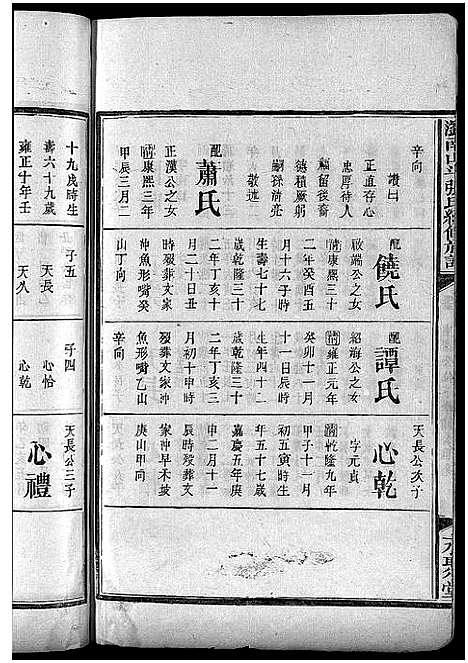 辛向
讚曰
正直存心
忠厚待人
福留後裔
德積厥躬
嗣孫俞亮
敬述
配蕭氏
正漢公之女
清康熙三年
甲辰三月二
配饒氏
啟端公之女
清康熙三十
二年癸酉五
月十六子時
生壽七十七
歲乾隆三十
二年丁亥十
二月二十日丑
時歿葬文家
沖魚形嘴癸
山丁向
配譚氏
紹海公之女
清雍正元年
癸卯十一月
十一日辰時
生年四十二
歲乾隆三十
二年丁亥三
月初十申時
歿葬文家沖
魚形嘴乙山
辛向
天長公次子
心乾
字元貞
清乾隆九年
甲子十一月
初五寅時生
年五十七歲
嘉慶五年庚
申二月十一
時歿葬文
家沖早禾坡
庚山甲向
十九戌時生
壽六十九歲
雍正十年壬
子五
天長
天久
子四
心恰
心乾
天長公三子
心禮